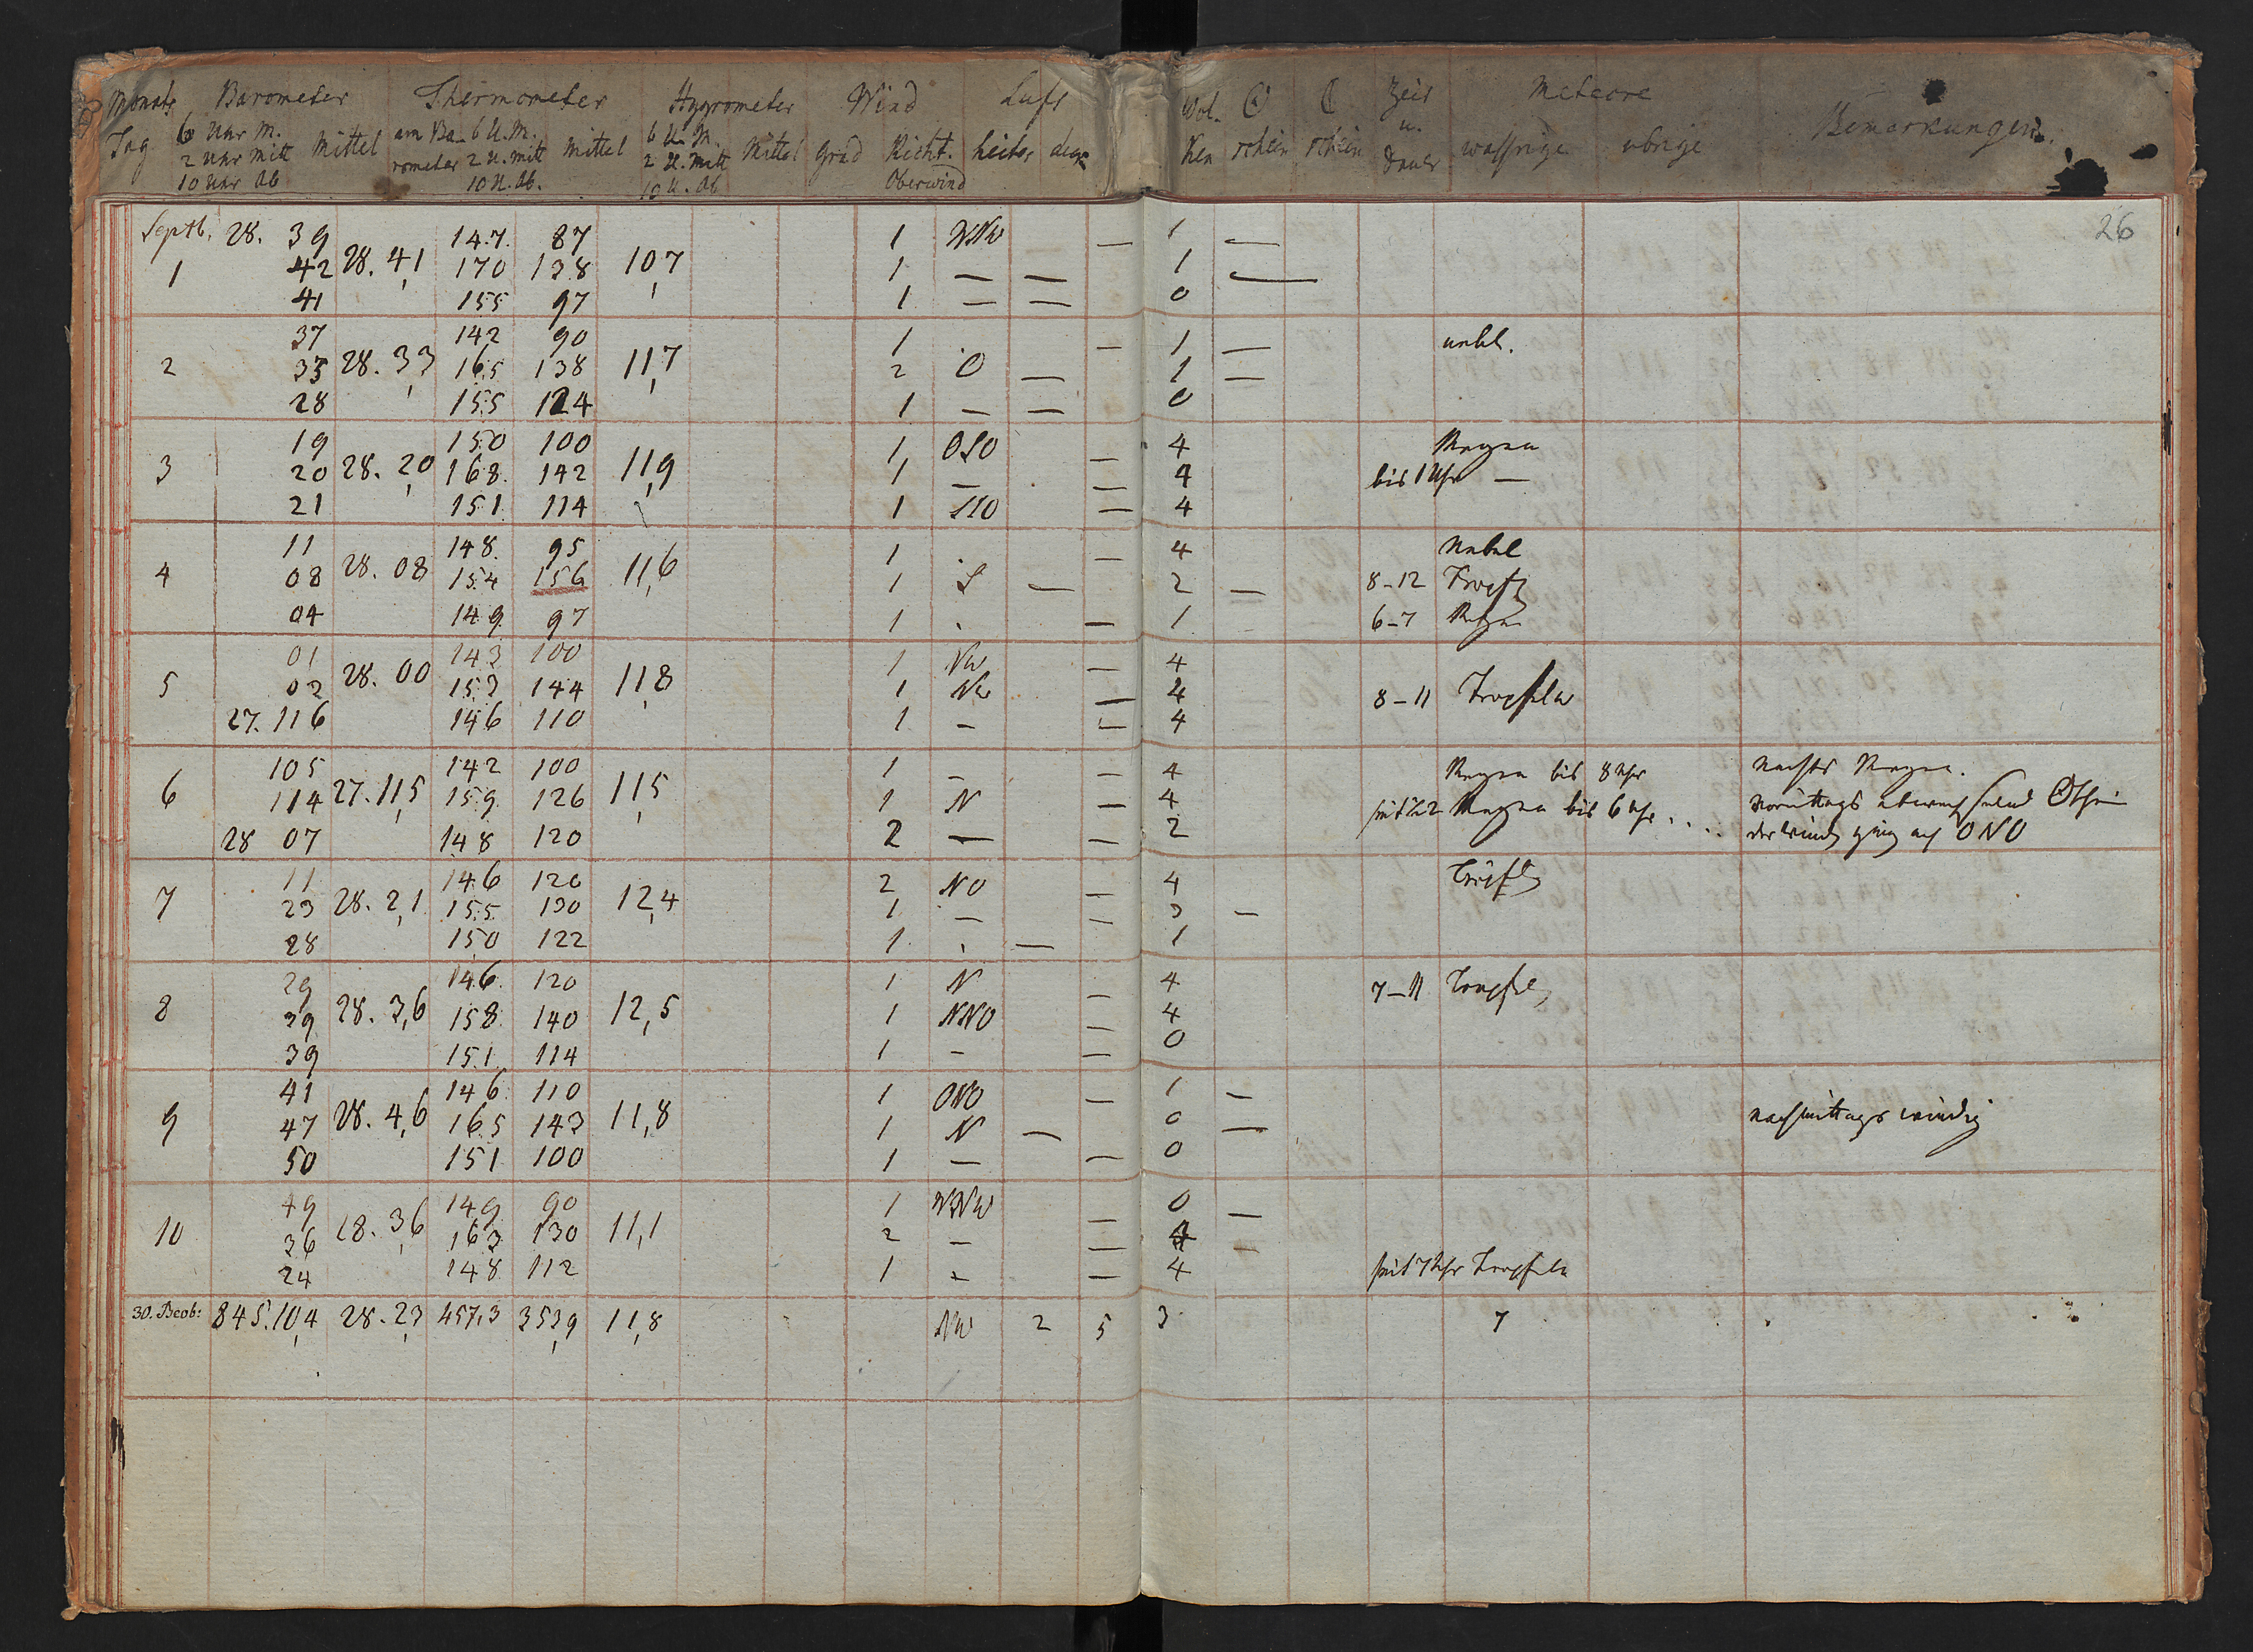 Monats Barometer Thermometer Hygrometer Wind Luft Wol- ☉ ☾ Zeit Meteore
Tag 6 Uhr M. Mittel am Ba- 6 U.M. Mittel 6 U. M. Mittel Grad Richt. heiter ken schein schein u. wässrige übrige Bemerkungen
2 Uhr Mitt rometer 2 U. Mitt 2 U. Mitt Oberwind Dauer
10 Uhr Ab 10 U. Ab. 10 U. Ab
26
Septb. 28. 39 147 87 1 WNW — 1 —
1 42 28. 4,1 170 138 10,7 1 — — 1 —
41 155 97 1 — — 0
37 142 90 1 — 1 — nebl.
2 33 28. 3,3 165 138 11,7 2 O — 1 —
28 155 124 1 — — 0
19 150 100 1 OSO — 4 Regen
3 20 28. 2,0 168 142 11,9 1 — — 4 bis 1 Uhr —
21 151 114 1 SSO — 4
11 148 95 1 — 4 Nebel
4 08 28. 08 154 156 11,6 1 S — 2 — 8-12
04 149 97 1 — 1 6-7 Regen
01 143 100 1 NW — 4
5 02 28. 00 153 144 11,8 1 NW — 4 8-11 Tropfeln
27. 116 146 110 1 — — 4
105 142 100 1 — — 4 Regen bis 8 Uhr Nachts Regen.
6 114 27. 11,5 159 126 11,5 1 N — 4 Regen bis 6 Uhr . . . . Vormittags abwechselnd
28 07 148 120 2 — — 2 der Wind ging auf ONO
11 146 120 2 NO — 4
7 23 28. 2,1 155 130 12,4 1 — — 3 —
28 150 122 1 — 1
29 146 120 1 N — 4 7-11
8 39 28. 3,6 158 140 12,5 1 NNO — 4
39 151 114 1 — — 0
41 146 110 1 ONO — 1 —
9 47 28. 4,6 165 143 11,8 1 N — 0 — nachmittags windig
50 151 100 1 — — 0
49 149 90 1 WNW — 0 —
10 36 28. 3,6 163 130 11,1 2 — — 4 —
24 148 112 1 — — 4 seit 7 Uhr Tropfeln
30. Beob: 845. 10,4 28. 2,3 457,3 353,9 11,8 NW 2 5 3 7